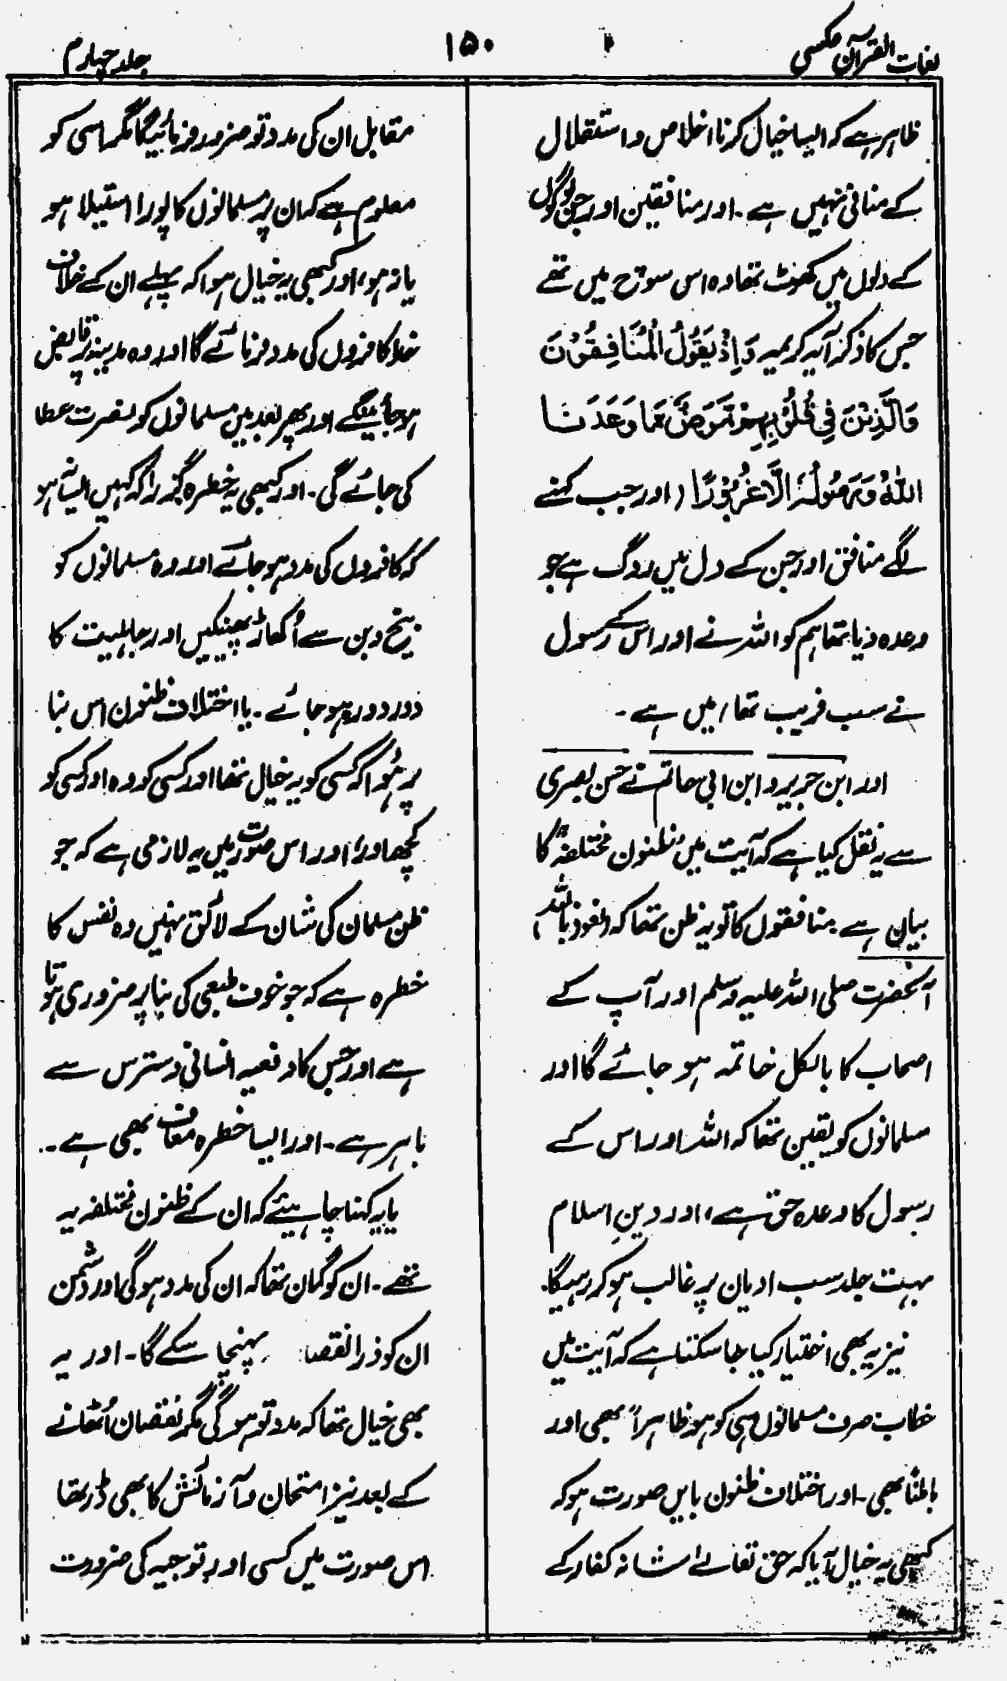 لغات القرآن عکسی
۱۵۰
جلد چہارم
ظاہر ہے کہ ایسا خیال کرنا اخلاص و استقلال
کے منافی نہیں ہے۔ اور منافقین اور جن لوگوں
کے دلوں میں کھوٹ تھا وہ اس سوچ میں تھے
جس کا ذکر آیہ کریمہ وَاِذْ یَقُوْلُ الْمُنَافِقُوْنَ
وَالَّذِیْنَ فِیْ قُلُوْبِہِمْ مَّرَضٌ مَّا وَعَدَنَا
اللّٰہُ وَرَسُوْلُہٗ اِلَّا غُرُوْرًا (اور جب کہنے
لگے منافق اور جن کے دل میں روگ ہے جو
وعدہ دیا تھا ہم کو اللہ نے اور اس کے رسول
نے سب فریب تھا) میں ہے۔
اور ابن جریر و ابن ابی حاتم نے حسن بصری
سے یہ نقل کیا ہے کہ آیت میں ظنون مختلفہ کا
بیان ہے منافقوں کا تو یہ ظن تھا کہ (نعوذ باللہ)
آنحضرت صلی اللہ علیہ وسلم اور آپ کے
اصحاب کا بالکل خاتمہ ہو جائے گا اور
مسلمانوں کو یقین تھا کہ اللہ اور اس کے
رسول کا وعدہ حق ہے، اور دینِ اسلام
بہت جلد سب ادیان پر غالب ہو کر رہیگا۔
نیز یہ بھی اختیار کیا جا سکتا ہے کہ آیت میں
خطاب صرف مسلمانوں ہی کو ہو ظاہراً بھی اور
باطناً بھی۔ اور اختلاف ظنون بایں صورت ہو کہ
کبھی یہ خیال آیا کہ حق تعالےٰ شانہ کفار کے
مقابل ان کی مدد تو ضرور فرمائیگا مگر اسی کو
معلوم ہے کہ ان پر مسلمانوں کا پورا استیلا ہو
یا نہ ہو، اور کبھی یہ خیال ہوا کہ پہلے ان کے خلاف
خدا کافروں کی مدد فرمائے گا اور وہ مدینہ پر قابض
ہو جائینگے اور پھر بعد میں مسلمانوں کو نصرت عطا
کی جائے گی۔ اور کبھی یہ خطرہ گزرا کہ کہیں ایسا نہ ہو
کہ کافروں کی مدد ہو جائے اور وہ مسلمانوں کو
بیخ و بن سے اُکھاڑ پھینکیں اور جاہلیت کا
دور دورہ ہو جائے۔ یا اختلاف ظنون اس بنا
پر ہُوا کہ کسی کو یہ خیال تھا اور کسی کو وہ اور کسی کو
کچھ اور، اور اس صورت میں یہ لازمی ہے کہ جو
ظن مسلمان کی شان کے لائق نہیں وہ نفس کا
خطرہ ہے کہ جو خوف طبعی کی بنا پر ضروری ہوتا
ہے اور جس کا دفعیہ انسانی دسترس سے
باہر ہے۔ اور ایسا خطرہ معاف بھی ہے۔
یا یہ کہنا چاہیئے کہ ان کے ظنون مختلفہ یہ
تھے۔ ان کو گمان تھا کہ ان کی مدد ہو گی اور دشمن
ان کو ذرا نقصا پہنچا سکے گا۔ اور یہ
بھی خیال تھا کہ مدد تو ہو گی مگر نقصان اُٹھانے
کے بعد نیز امتحان و آزمائش کا بھی ڈر تھا
اس صورت میں کسی اور توجیہ کی ضرورت